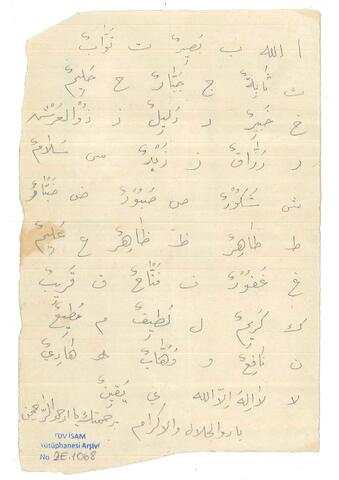 ا الله ب بَصِيرٌ ت تَوَّابٌ
ث ثَابِتٌ ج جَبَّارٌ ح حَلِيمٌ
خ خَبِيرٌ د دَلِيلٌ ذ ذُوالعَرْشِ
ر رَزَّاقٌ ز س سَلَامٌ
ش شَكُورٌ ص صَبُورٌ ض ضَارٌّ
ط طَاهِرٌ ظ ظَاهِرٌ ع عَلِيمٌ
غ غَفُورٌ ف فَتَّاحٌ ق قَرِيبٌ
ك كَرِيمٌ ل لَطِيفٌ م
ن نَافِعٌ و وَهَّابٌ ه هَادِي
لا لَا إِلَهَ إِلَّا الله ي
برحمتك يا ارحم الرّاحمين
ياذوالجلال والاكرام
TDV İSAM
Kütüphanesi Arşivi
No 2E.1068